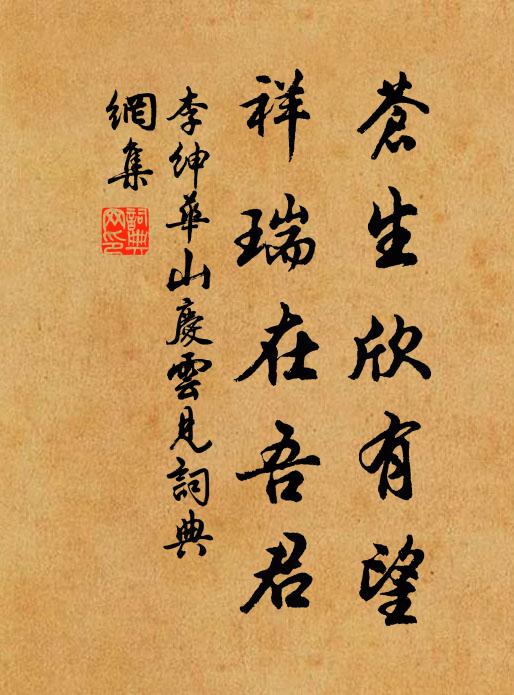 蒼生欣有望
祥瑞在吾君
李紳華山慶雲見詞典
網集
詞典
网印